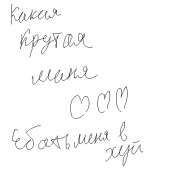 Какая
крутая
шапя
♡♡♡
Ебать меня в
хуй